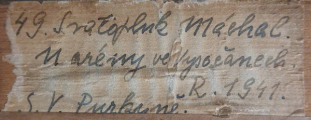 49. Svatopluk Máchal.
U arény ve Vysočanech.
R. 1941.
S. V. Purkyně.